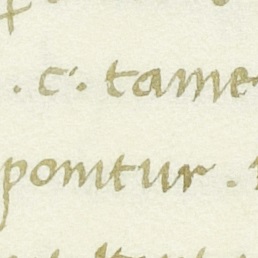 . c. tame
ponitur .